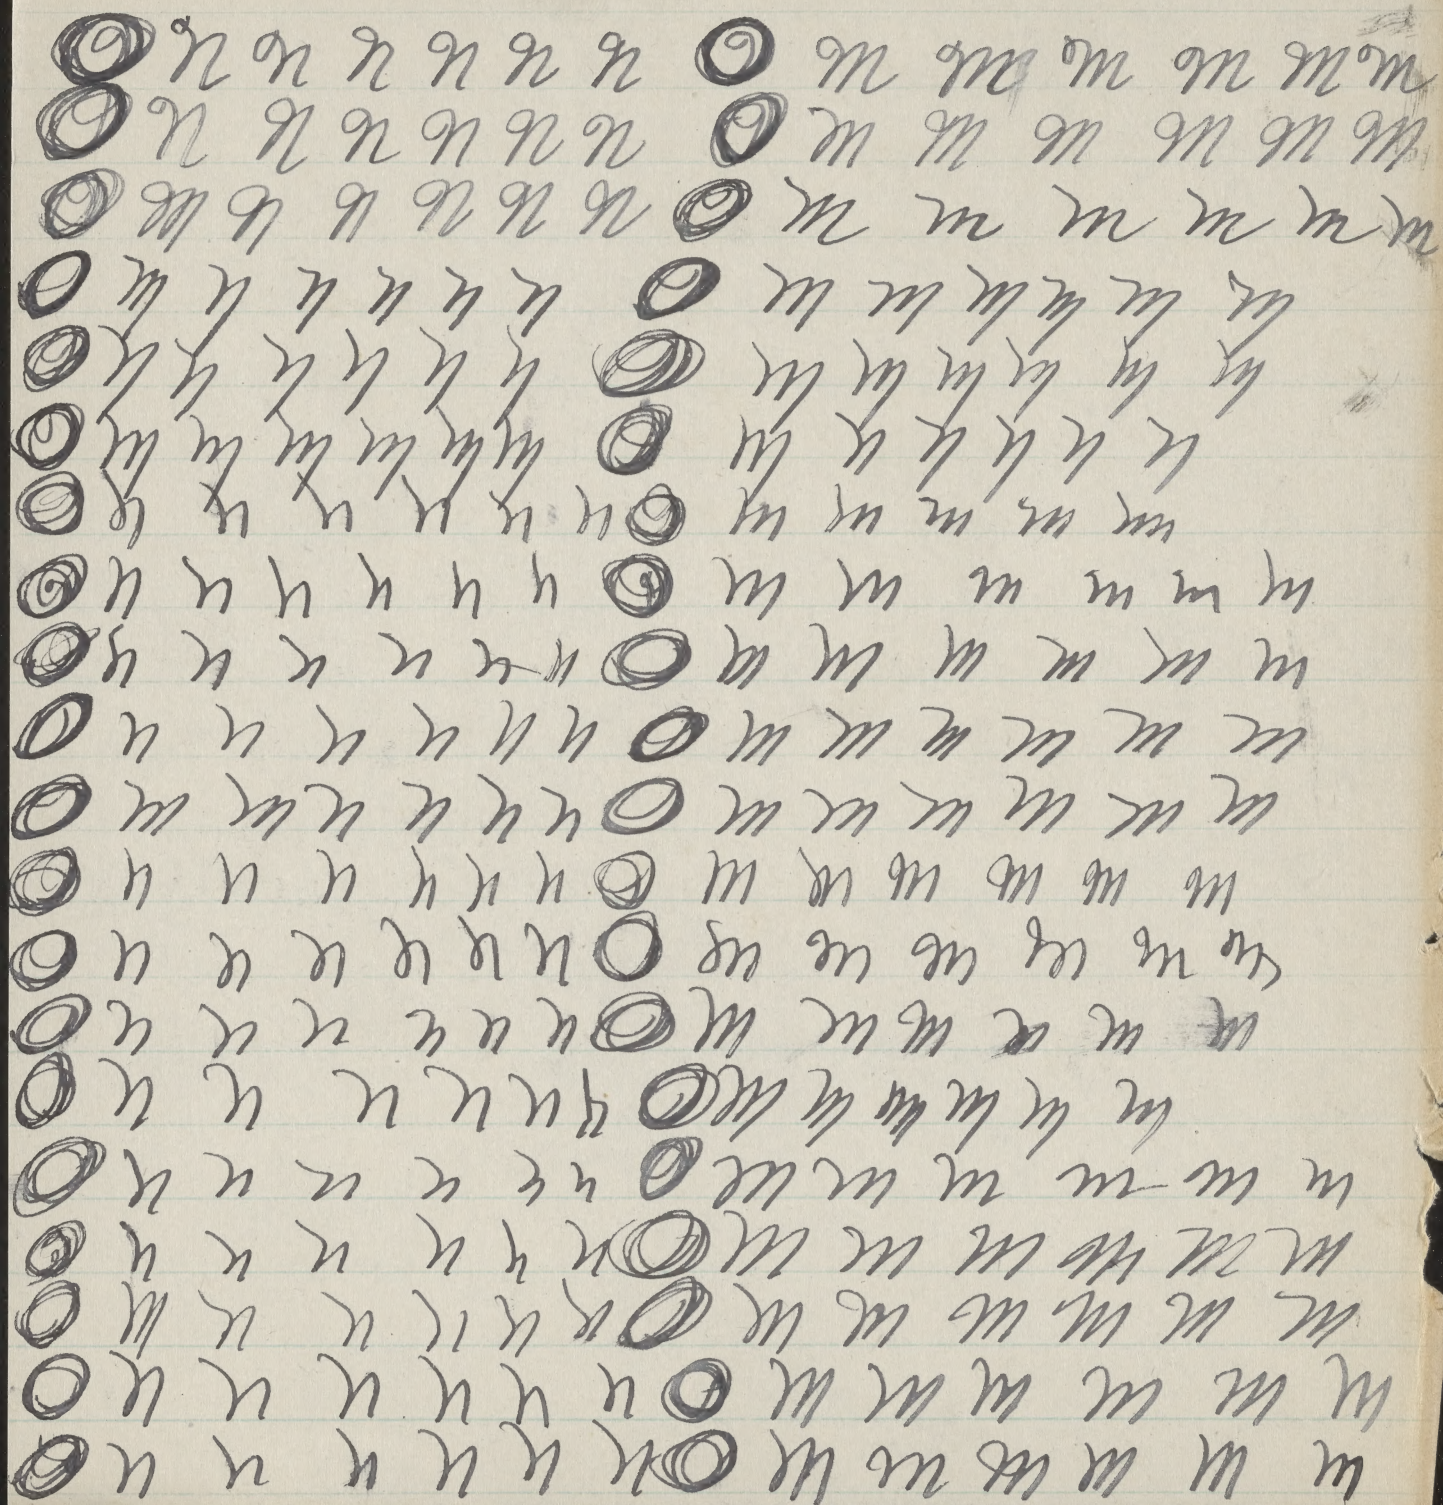 O N N N N N N O M M M M M M
O N N N N N N O M M M M M M
O M N N N N N O M M M M M M
O M N N N N N O M M M M M M
O N N N N N N O M M M M M M
O M M M M M M O M N N N N N
O N N N N N N O M M M M M
O N N N N N N O M M M M M M
O N N N N N N O M M M M M M
O N N N N N N O M M M M M M
O M M N N N N O M M M M M M
O N N N N N N O M M M M M M
O N N N N N N O M M M M M M
O N N N N N N O M M M M M M
O N N N N N N O M M M M M M
O N N N N N N O M M M M M M
O N N N N N N O M M M M M M
O M N N N N N O M M M M M M
O N N N N N N O M M M M M M
O N N N N N N O M M M M M M